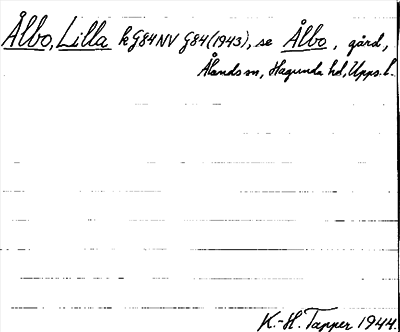 Ålbo, Lilla k G84NV G84(1943), se Ålbo, gård,
Ålands sn, Hagunda hd, Upps. l.
K.-H. Tapper 1944